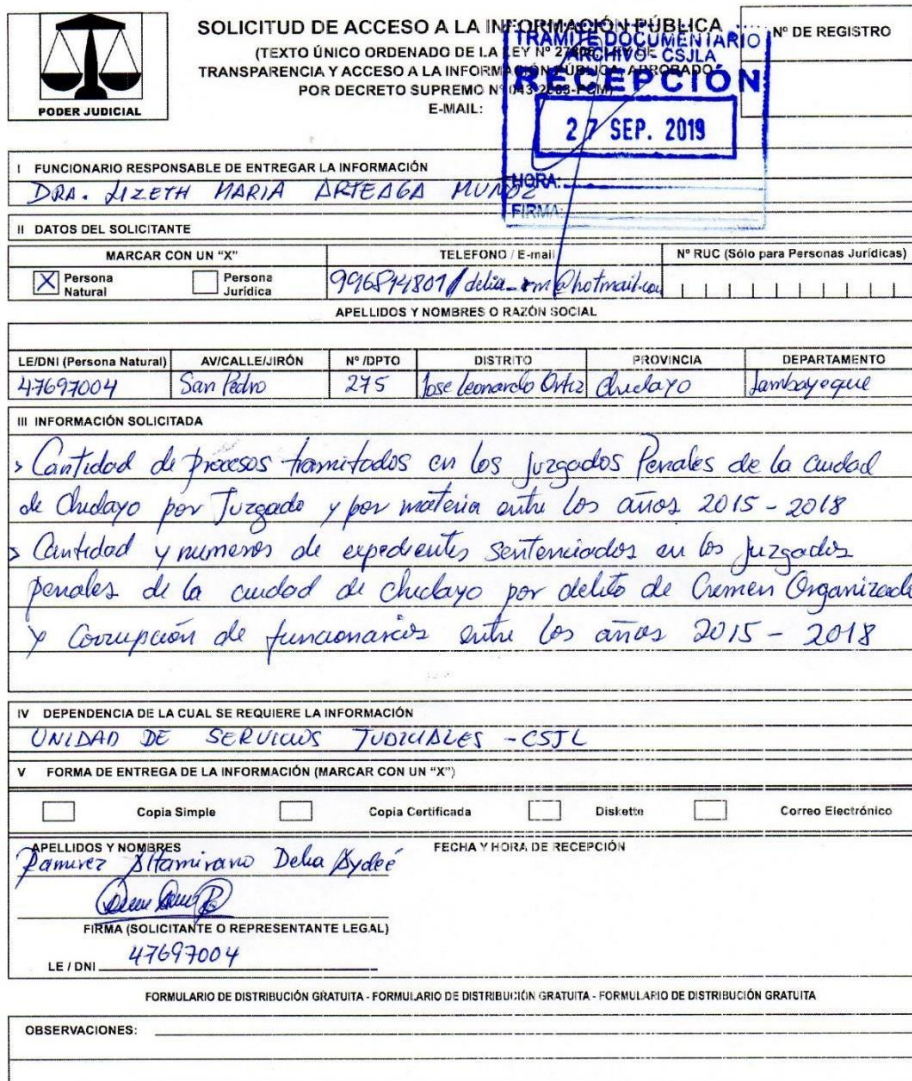 PODER JUDICIAL
SOLICITUD DE ACCESO A LA INFORMACIÓN PÚBLICA
(TEXTO ÚNICO ORDENADO DE LA LEY Nº 27806, LEY DE
TRANSPARENCIA Y ACCESO A LA INFORMACIÓN PÚBLICA, APROBADO
POR DECRETO SUPREMO Nº 043-2003-PCM)
E-MAIL:
Nº DE REGISTRO
TRAMITE DOCUMENTARIO
ARCHIVO - CSJLA
RECEPCIÓN
27 SEP. 2019
HORA:
FIRMA:
I FUNCIONARIO RESPONSABLE DE ENTREGAR LA INFORMACIÓN
DRA. LIZETH MARIA ARTEAGA MUÑOZ
II DATOS DEL SOLICITANTE
MARCAR CON UN "X" TELEFONO / E-mail Nº RUC (Sólo para Personas Jurídicas)
X Persona Natural Persona Jurídica / @hotmail.com
APELLIDOS Y NOMBRES O RAZÓN SOCIAL
LE/DNI (Persona Natural) AV/CALLE/JIRÓN Nº /DPTO DISTRITO PROVINCIA DEPARTAMENTO
47697004 San Pedro 275 Jose Leonardo Ortiz Chiclayo Lambayeque
III INFORMACIÓN SOLICITADA
> Cantidad de procesos tramitados en los Juzgados Penales de la ciudad
de Chiclayo por Juzgado y por materia entre los años 2015 - 2018
> Cantidad y numeros de expedientes sentenciados en los Juzgados
penales de la ciudad de chiclayo por delito de Crimen Organizado
y Corrupción de funcionarios entre los años 2015 - 2018
IV DEPENDENCIA DE LA CUAL SE REQUIERE LA INFORMACIÓN
UNIDAD DE SERVICIOS JUDICIALES - CSJL
V FORMA DE ENTREGA DE LA INFORMACIÓN (MARCAR CON UN "X")
Copia Simple Copia Certificada Diskette Correo Electrónico
APELLIDOS Y NOMBRES FECHA Y HORA DE RECEPCIÓN
Ramirez Altamirano Delia Aydeé
FIRMA (SOLICITANTE O REPRESENTANTE LEGAL)
LE / DNI 47697004
FORMULARIO DE DISTRIBUCIÓN GRATUITA - FORMULARIO DE DISTRIBUCIÓN GRATUITA - FORMULARIO DE DISTRIBUCIÓN GRATUITA
OBSERVACIONES: